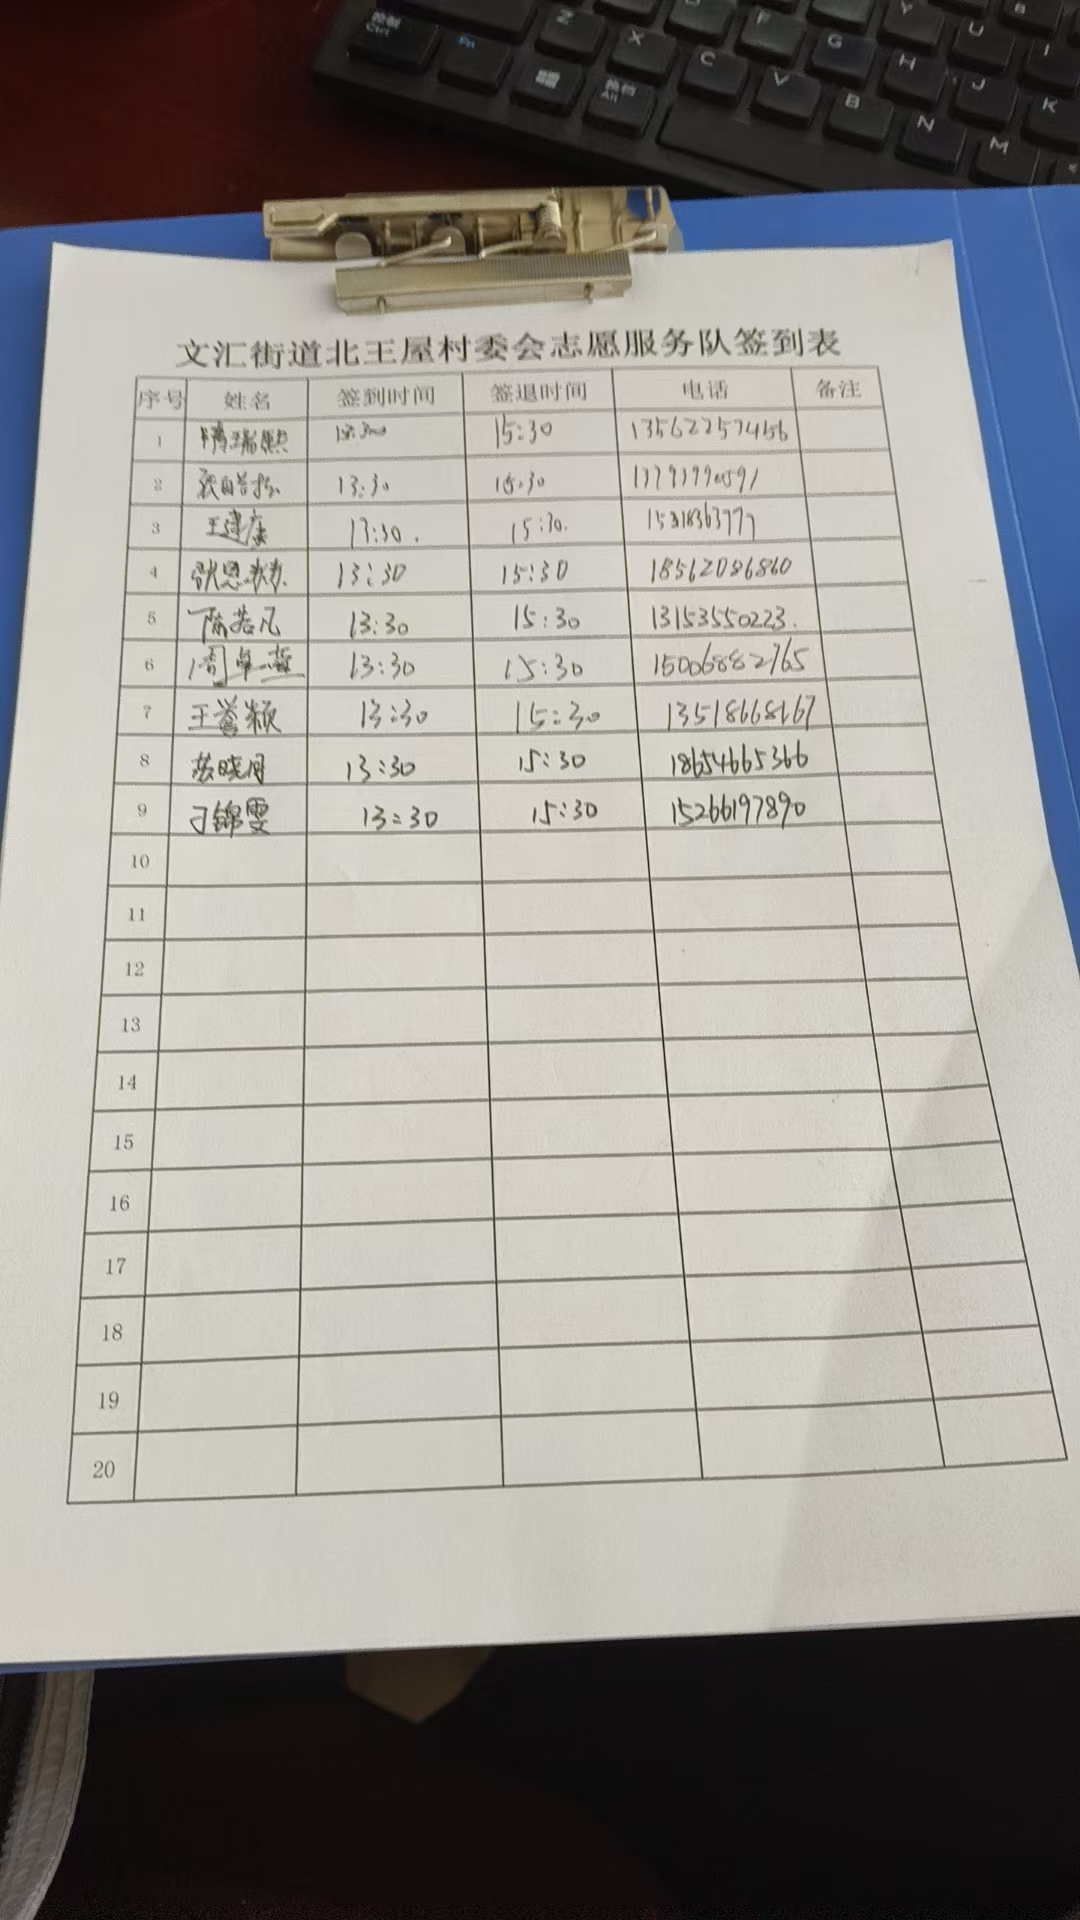 控制
Ctrl
Fn
Z
X
C
V
B
N
M
F
G
H
J
K
Y
U
I
换档
Alt
文汇街道北王屋村委会志愿服务队签到表
序号 姓名 签到时间 签退时间 电话 备注
1 隋瑞熙 15:30 13562257456
2 13:30 15:30
3 王建康 13:30. 15:30.
4 13:30 15:30 18562086860
5 陈若凡 13:30 15:30 13153550223.
6 周卓萱 13:30 15:30 15006882765
7 王誉颖 13:30 15:30 13518668167
8 苏晓月 13:30 15:30 18654665366
9 刁锦雯 13:30 15:30 15266197890
10
11
12
13
14
15
16
17
18
19
20